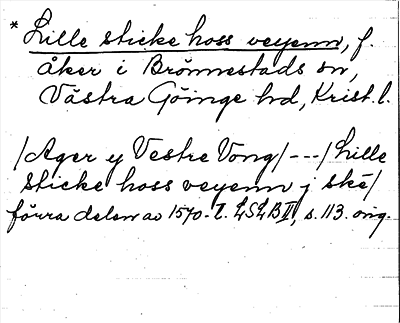 * Lille sticke hoss veyenn, f.
åker i Brönnestads sn,
Västra Göinge hd, Krist. l.
/Ager y Vestre Vong/---/Lille
sticke hoss veyenn j ske/
förra delen av 1570-t. LSLB II, s. 113. orig.